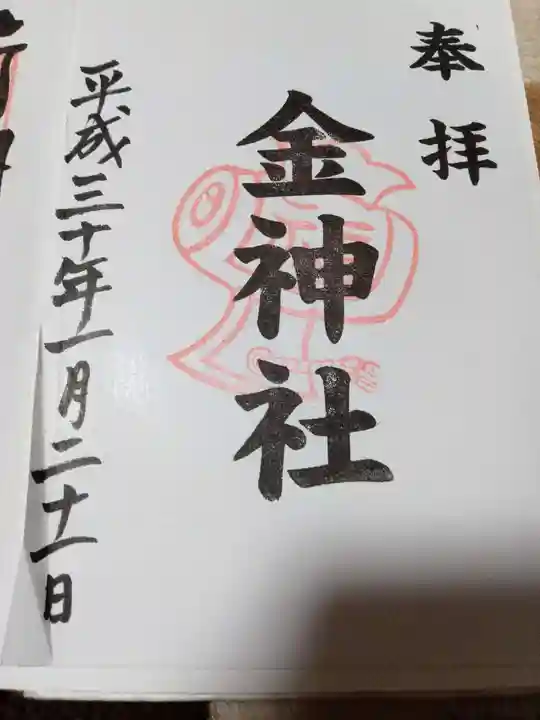 奉拝
金神社
平成三十年一月二十一日